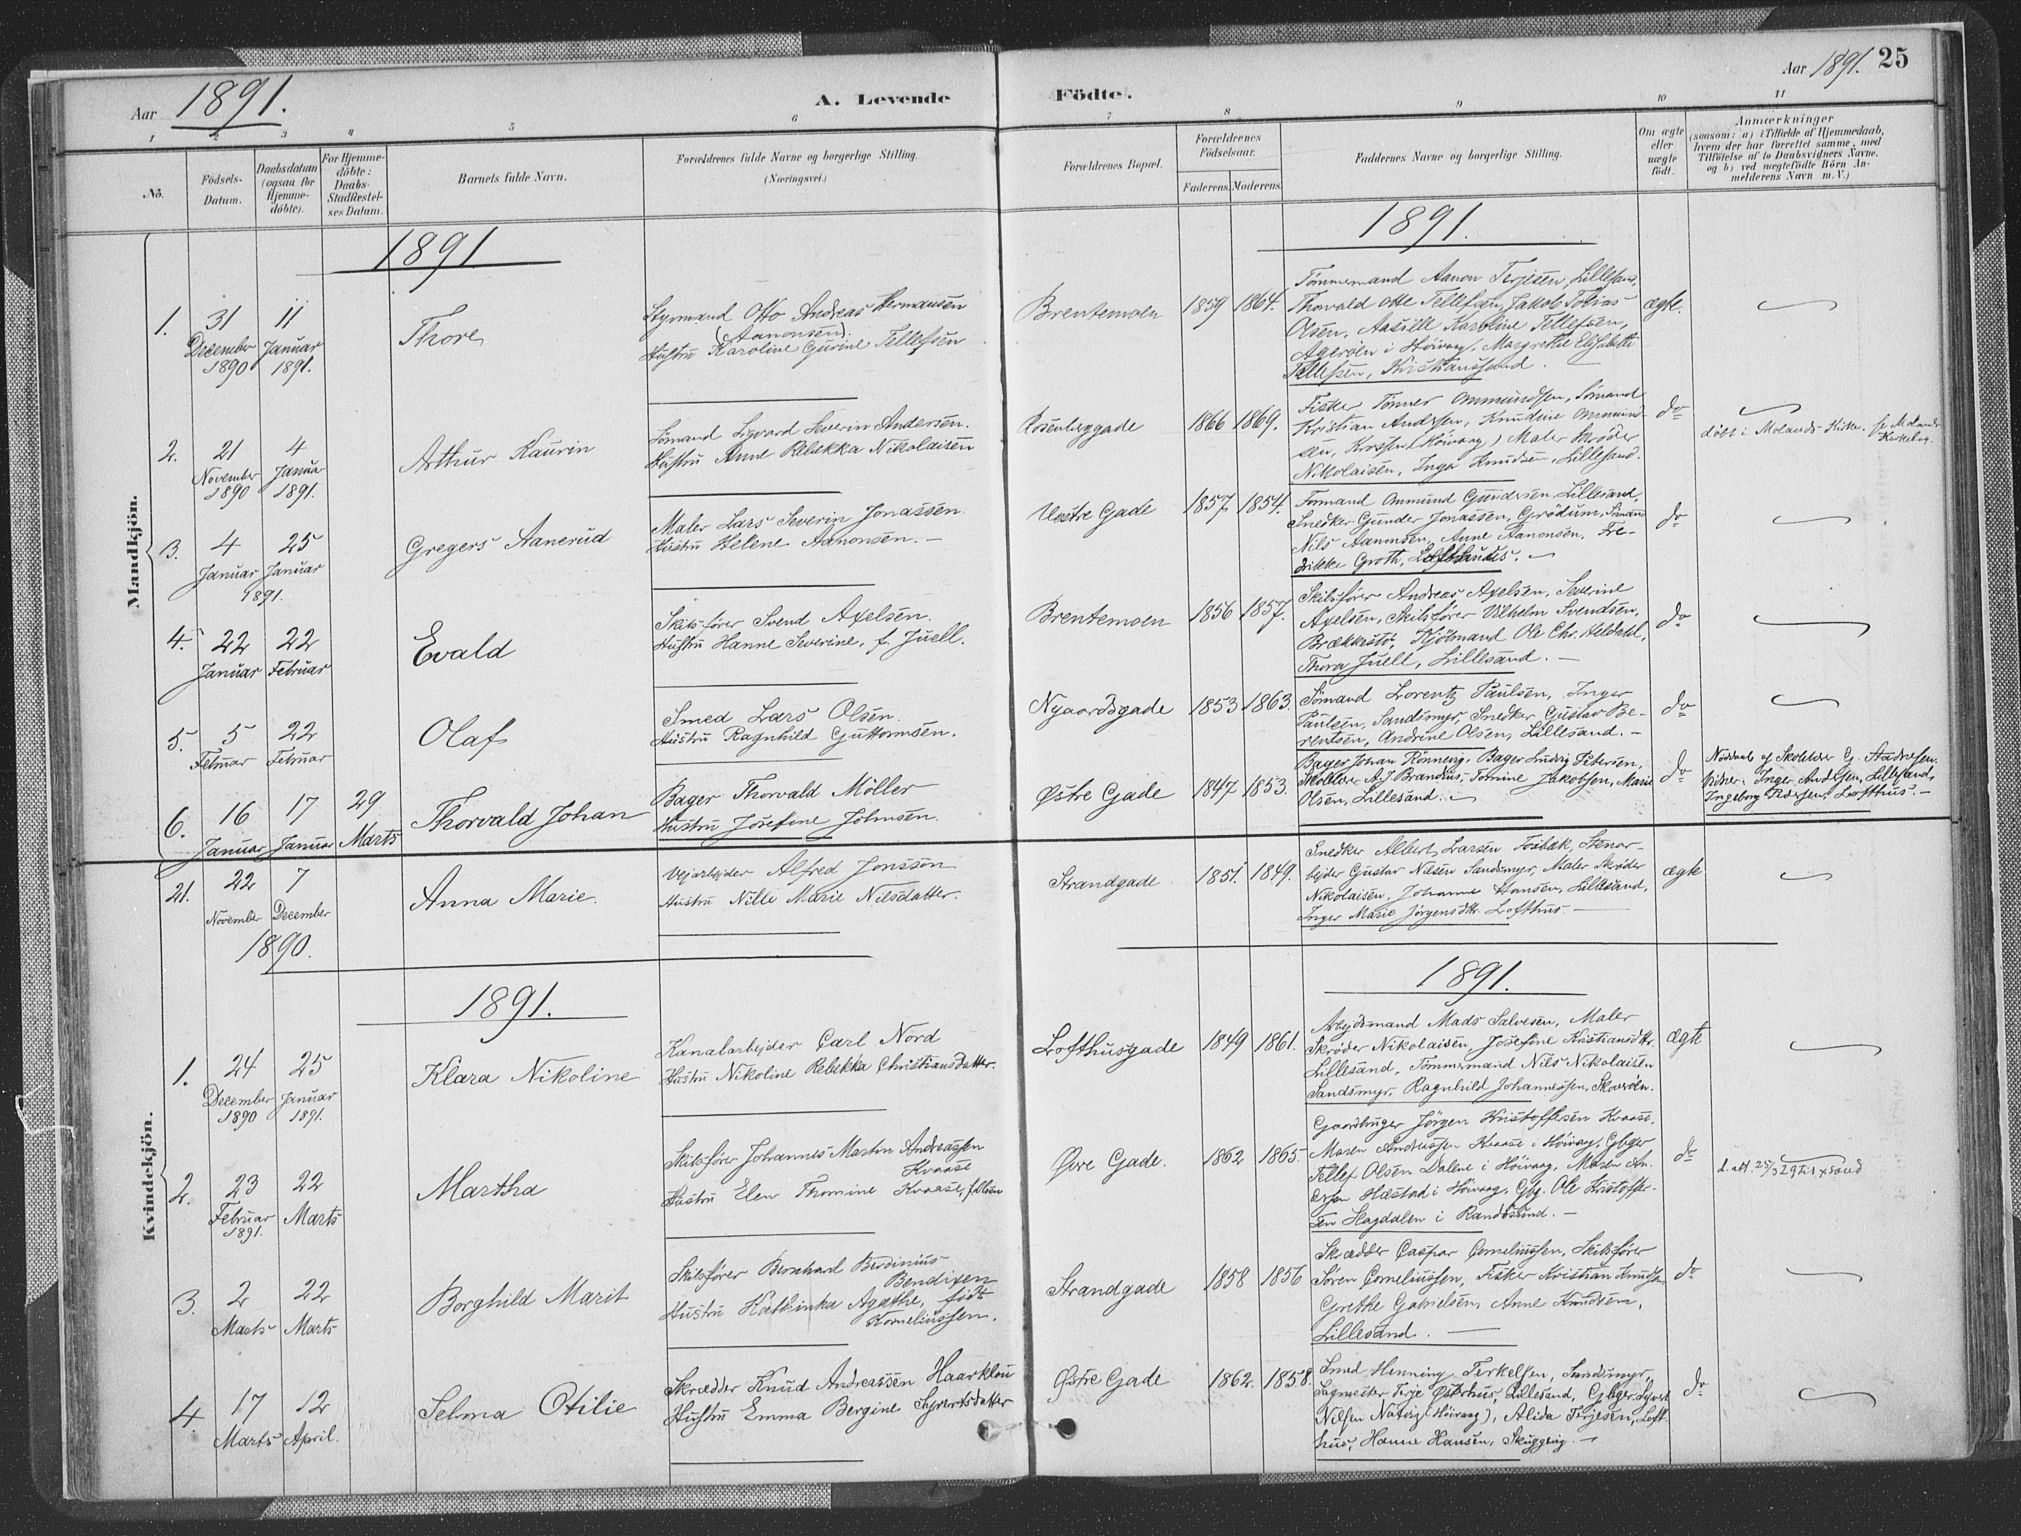 Aar 1891. A. Levende Födte. Aar 1891. 25
1 2 3 4 5 6 7 8 9 10 11
No.
Födsels-Datum.
Daabsdatum (ogsaa for Hjemme-döbte).
For Hjemme-döbte: Daabs-Stadfæstel-ses Datum.
Barnets fulde Navn.
Forældrenes fulde Navne og borgerlige Stilling.
(Næringsvei.)
Forældrenes Bopæl.
Forældrenes Födselsaar.
Faderens. Moderens.
Faddernes Navne og borgerlige Stilling.
Om ægte eller uægte födt.
Anmærkninger
(saasom: a) i Tilfælde af Hjemmedaab,
hvem der har forrettet samme, med
Tilföielse af to Daabsvidners Navne,
og b) ved uægtefödte Börn An-
melderens Navn m. V.)
Mandkjön.
1891
1891.
1. 31 December 1890 11 Januar 1891.
Thore
Styrmand Otto Andreas Hermansen
(Aanonsen).
Hustru Karoline Gurine Tellefsen
Brentemoen 1859 1864.
Tømmermand Aanon Terjesen, Lillesand,
Thorvald Otte Tellefsen, Jakob Tobias
Olsen, Aasille Karoline Tellefsen,
Agerøen i Høivaag, Margrethe Elisabeth
Tellefsen, Kristianssand.
ægte.
2. 21 November 1890 4 Januar 1891.
Arthur Kaurin
Sømand Sigvard Severin Andersen.
Hustru Anne Rebekka Nikolaisen
Rosenberggade 1866 1869.
Fisker Tønner Ommundsen, Sømand
Kristian Andersen, Knudine Ommund-
sen, (Høivaag) Maler Skrøder
Nikolaisen, Inger Knudsen, Lillesand.
do
døbt i Molands Kirke.
3. 4 Januar 25 Januar 1891.
Gregers Aanerud
Maler Lars Severin Jonassen
Hustru Helene Aanonsen. —
Vestre Gade 1857 1854.
Formand Ommund Gundersen Lillesand,
Snedker Gunder Jonassen, Grødum, Sømand
Nils Aanonsen, Anne Aanonsen, Fre-
drikke Groth,
do
4. 22 Januar 22 Februar
Evald
Skibsfører Svend Axelsen.
Hustru Hanne Severine, f. Juell.
Brentemoen 1856 1857.
Skibsfører Andreas Axelsen, Severine
Axelsen, Skibsfører Vilhelm Svendsen,
Brækkestø, Kjøbmand Ole Chr. Heldahl,
Thora Juell, Lillesand. —
do
5. 5 Februar 22 Februar
Olaf
Smed Lars Olsen.
Hustru Ragnhild Guttormsen.
Nygaardsgade 1853 1863.
Sømand Lorentz Paulsen, Inger
Paulsen, Sandsmyr, Snedker Gustav Be-
rentsen, Andrine Olsen, Lillesand. —
do
6. 16 Januar 17 Januar 29 Marts
Thorvald Johan
Bager Thorvald Möller
Hustru Josefine Johnsen.
Østre Gade 1847 1853.
Bager Johan Rönnevig, Bager Ludvig Petersen,
Skolelærer A. J. Brandsus, Tomine Jakobsen, Marie
Olsen, Lillesand.
do
Nöddaab af Skolelder G.
Vidner: Inger Andersen, Lillesand,
Ingeborg Pedersen, Lofthus. —
Kvindekjön.
21. 22 November 7 December 1890.
Anna Marie.
Vejarbejder Alfred Jonsson
Hustru Nille Marie Nilsdatter.
Strandgade 1851. 1849.
Snedker Albert Larsen Fosbæk, Stenar-
bejder Gustav Nilsen Sandsmyr, Maler Skrøder
Nikolaisen, Johanne Hansen, Lillesand,
Inger Marie Jörgensdtr. Lofthus. —
ægte
1891.
1891.
1. 24 December 1890 25 Januar 1891.
Klara Nikoline
Kanalarbejder Carl Nord
Hustru Nikoline Rebekka Christiansdatter.
Lofthusgade 1849 1861.
Arbejdsmand Mads Salvesen, Maler
Skrøder Nikolaisen, Josefine Kristiansdtr.
Lillesand, Tømmermand Nils Nikolaisen
Sandsmyr, Ragnhild Johannessen, Skverøen.
ægte
2. 23 Februar 1891. 22 Marts
Martha
Skibsfører Johannes Martin Andreassen
Kvaase
Hustru Elen Thomine Kvaase, f. Olsen
Øvre Gade. 1862 1865.
Gaardbruger Jörgen Kristoffersen Kvaase,
Maren Andreassen Kvaase i Høivaag, Gbger
Tellef Olsen Dalene i Høivaag, Maren An-
dersen Hæstad i Høivaag, Gbg. Ole Kristoffer-
sen Hagdalen i Randøsund. —
do
3. 2 Marts 22 Marts
Borghild Marit
Skibsfører Bernhard Berdinius
Bendixen
Hustru Kathinka Agathe, född
Korneliussen.
Strandgade 1858 1856
Skrædder Caspar Corneliussen, Skibsfører
Søren Corneliussen, Fisker Kristian Knudsen
Grethe Gabrielsen, Anne Knudsen,
Lillesand. —
do
4. 17 Marts 12 April.
Selma Otilie
Skrædder Knud Andreassen Haarklou
Hustru Emma Bergine Syvertsdatter
Østre Gade 1862. 1858.
Smed Henning Terkelsen, Sandsmyr,
Sagmester Terje Østerhus, Lillesand, Gbger. Syvert
Nilsen (Høivaag), Alida Terjesen, Loft-
hus, Hanne Hansen, Skuggevig. —
do